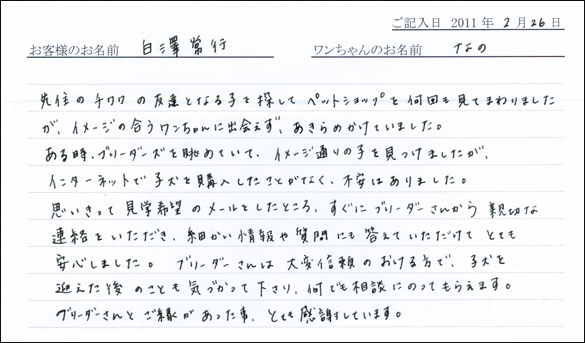 ご記入日 2011 年 2 月 26 日
お客様のお名前 白澤常行 ワンちゃんのお名前 なの
先住のチワワの友達となる子を探してペットショップを何回も見てまわりました
が、イメージの合うワンちゃんに出会えず、あきらめかけていました。
ある時、ブリーダーズを眺めていて、イメージ通りの子を見つけましたが、
インターネットで子犬を購入したことがなく、不安はありました。
思いきって見学希望のメールをしたところ、すぐにブリーダーさんから親切な
連絡をいただき、細かい情報や質問にも答えていただけてとても
安心しました。 ブリーダーさんは大変信頼のおける方で、子犬を
迎えた後のことも気づかって下さり、何でも相談にのってもらえます。
ブリーダーさんとご縁があった事、とても感謝しています。